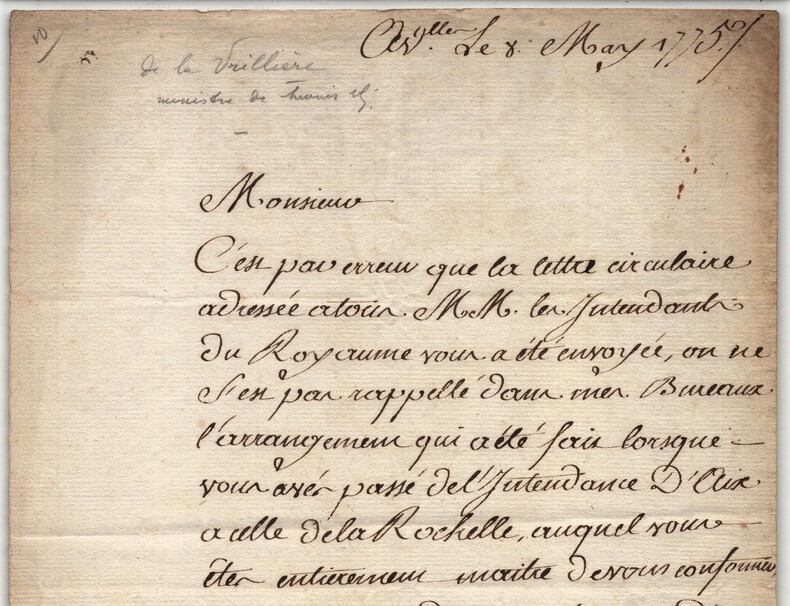 10/
A Vllˢ Le 8. May 1775./.
de la Vrillière
ministre de Louis 16.
Monsieur
C'est par erreur que la lettre circulaire
adressée atous MM. les Intendants
du Royaume vous a été envoyée, on ne
s'est pas rappellé dans mes Bureaux
l'arrangement qui a été fait lorsque
vous avés passé de l'Intendance D'Aix
a celle de la Rochelle, auquel vous
êtes entierement maitre de vous conformer,